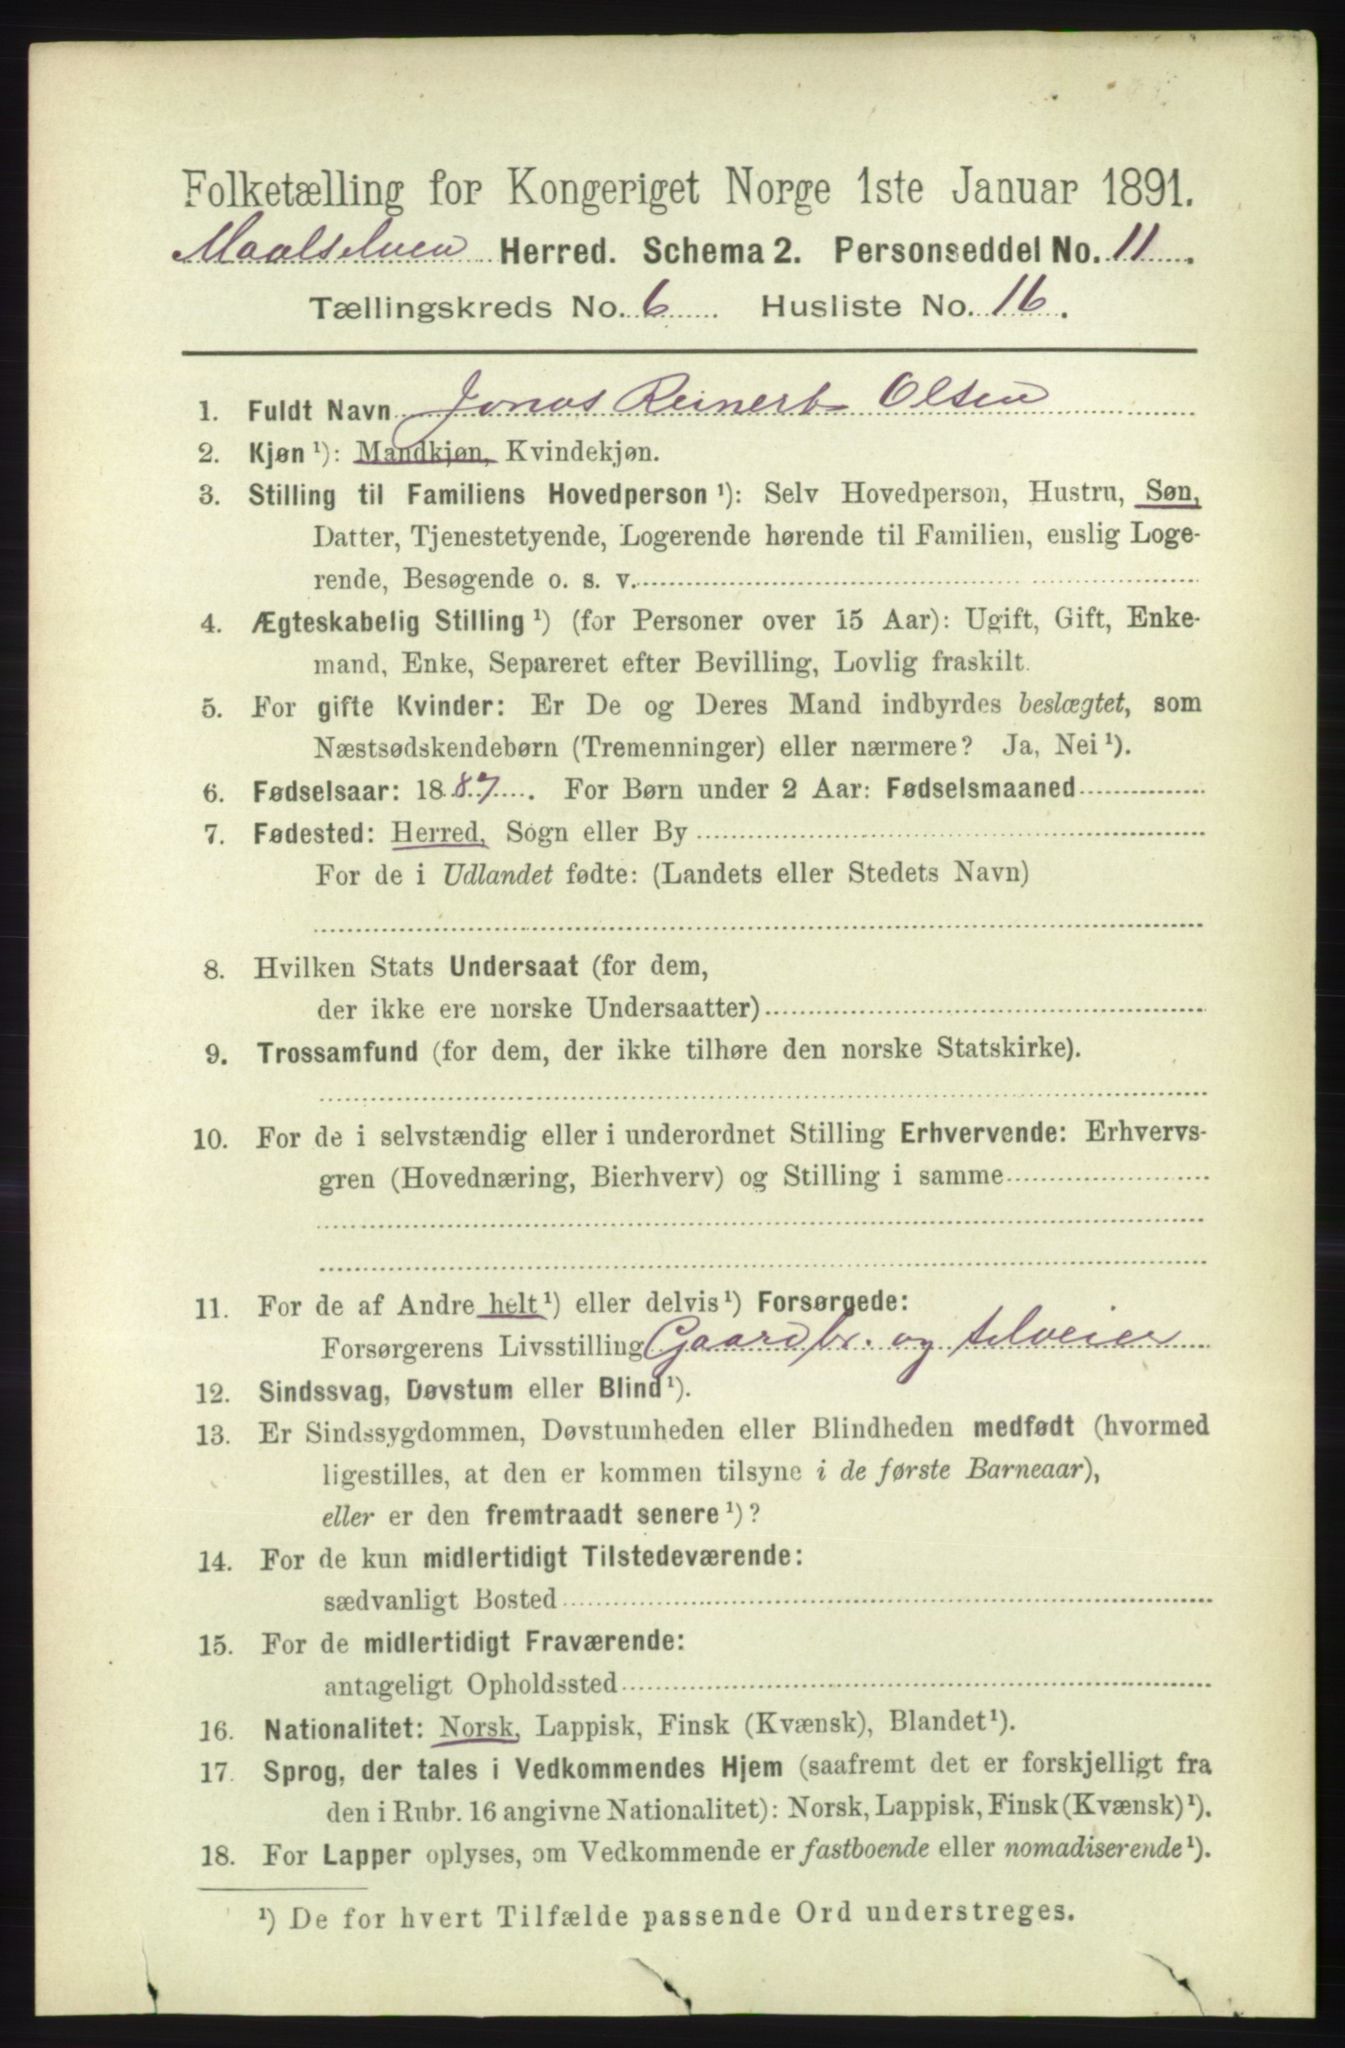 Folketælling for Kongeriget Norge 1ste Januar 1891.
Maalselven Herred. Schema 2. Personseddel No. 11.
Tællingskreds No. 6 Husliste No. 16.
1. Fuldt Navn Jonas Reinert Olsen
2. Kjøn ¹): Mandkjøn, Kvindekjøn.
3. Stilling til Familiens Hovedperson ¹): Selv Hovedperson, Hustru, Søn,
Datter, Tjenestetyende, Logerende hørende til Familien, enslig Loge-
rende, Besøgende o. s. v.
4. Ægteskabelig Stilling ¹) (for Personer over 15 Aar): Ugift, Gift, Enke-
mand, Enke, Separeret efter Bevilling, Lovlig fraskilt.
5. For gifte Kvinder: Er De og Deres Mand indbyrdes beslægtet, som
Næstsødskendebørn (Tremenninger) eller nærmere? Ja, Nei ¹).
6. Fødselsaar: 1887. For Børn under 2 Aar: Fødselsmaaned
7. Fødested: Herred, Sogn eller By
For de i Udlandet fødte: (Landets eller Stedets Navn)
8. Hvilken Stats Undersaat (for dem,
der ikke ere norske Undersaatter)
9. Trossamfund (for dem, der ikke tilhøre den norske Statskirke).
10. For de i selvstændig eller i underordnet Stilling Erhvervende: Erhvervs-
gren (Hovednæring, Bierhverv) og Stilling i samme
11. For de af Andre helt ¹) eller delvis ¹) Forsørgede:
Forsørgerens Livsstilling Gaardbr. og selveier
12. Sindssvag, Døvstum eller Blind ¹).
13. Er Sindssygdommen, Døvstumheden eller Blindheden medfødt (hvormed
ligestilles, at den er kommen tilsyne i de første Barneaar),
eller er den fremtraadt senere ¹)?
14. For de kun midlertidigt Tilstedeværende:
sædvanligt Bosted
15. For de midlertidigt Fraværende:
antageligt Opholdssted
16. Nationalitet: Norsk, Lappisk, Finsk (Kvænsk), Blandet ¹).
17. Sprog, der tales i Vedkommendes Hjem (saafremt det er forskjelligt fra
den i Rubr. 16 angivne Nationalitet): Norsk, Lappisk, Finsk (Kvænsk) ¹).
18. For Lapper oplyses, om Vedkommende er fastboende eller nomadiserende ¹).
¹) De for hvert Tilfælde passende Ord understreges.